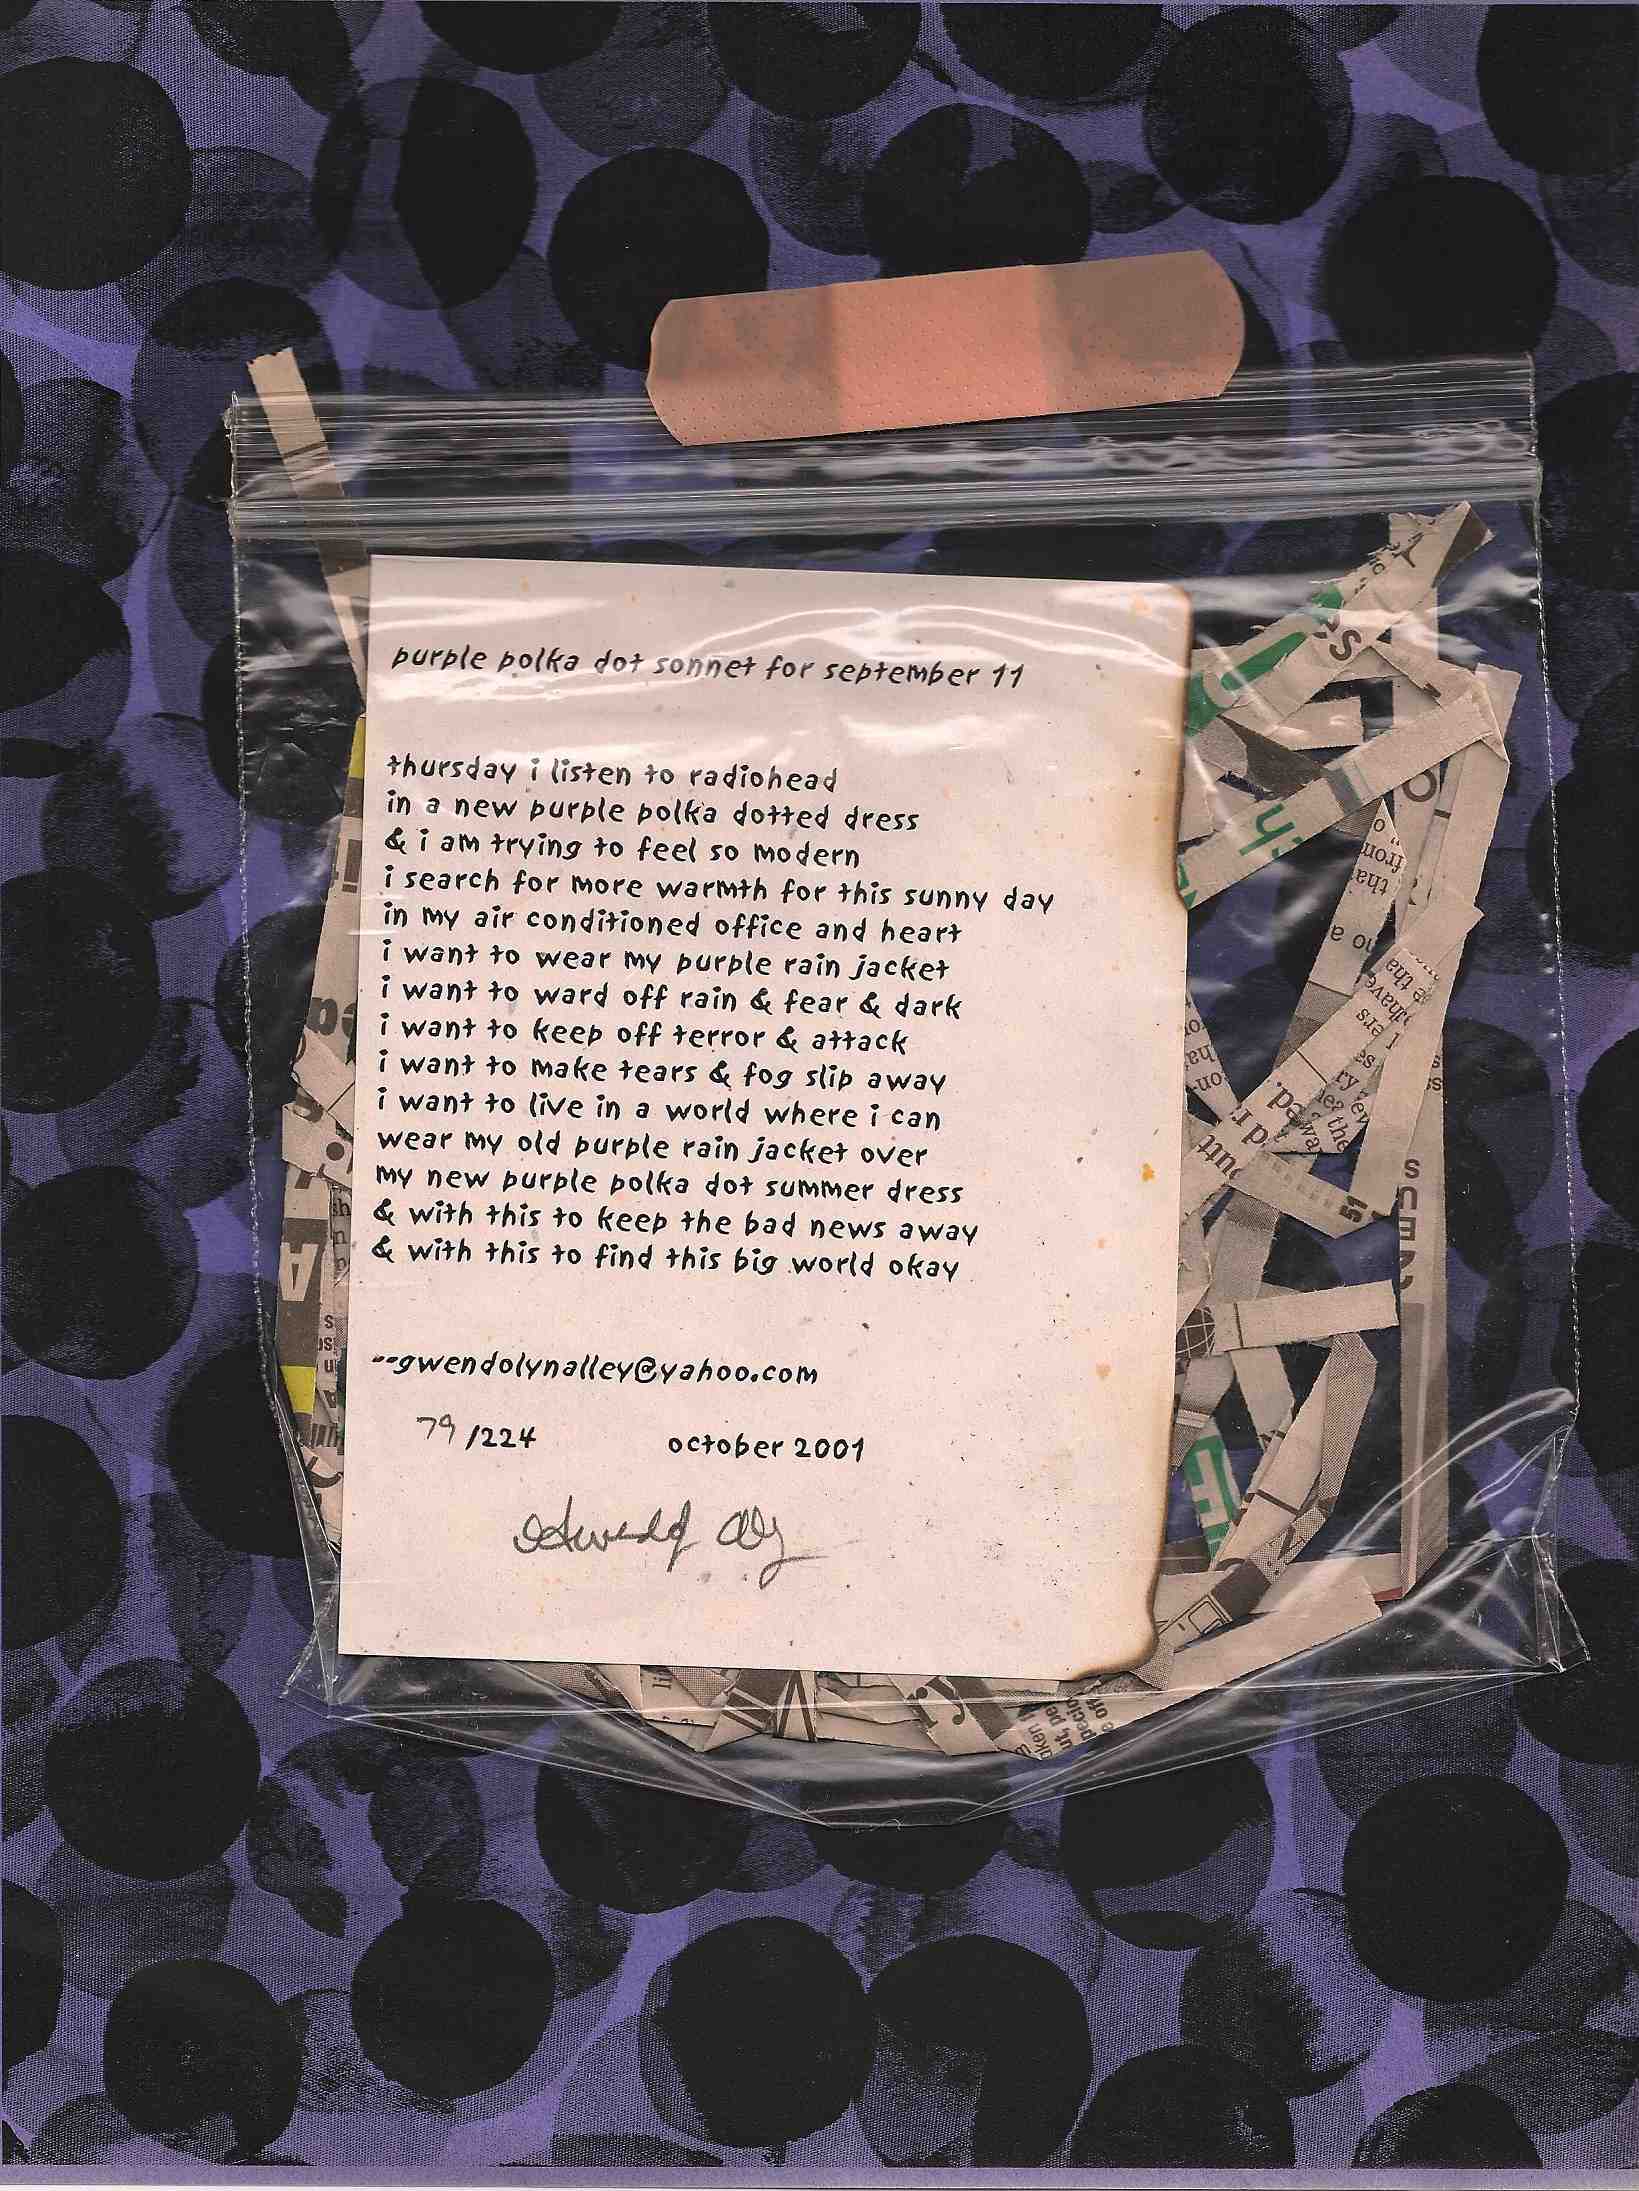 purple polka dot sonnet for september 11
thursday i listen to radiohead
in a new purple polka dotted dress
& i am trying to feel so modern
i search for more warmth for this sunny day
in my air conditioned office and heart
i want to wear my purple rain jacket
i want to ward off rain & fear & dark
i want to keep off terror & attack
i want to make tears & fog slip away
i want to live in a world where i can
wear my old purple rain jacket over
my new purple polka dot summer dress
& with this to keep the bad news away
& with this to find this big world okay
--gwendolynalley@yahoo.com
79/224 october 2001